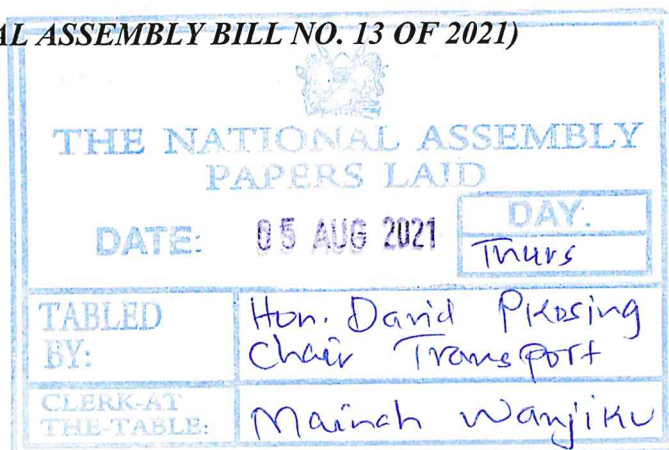 AL ASSEMBLY BILL NO. 13 OF 2021)
THE NATIONAL ASSEMBLY
PAPERS LAID
DATE: 05 AUG 2021
DAY:
Thurs
TABLED
BY:
Hon. David Pkosing
Chair Transport
CLERK-AT
THE-TABLE:
Mainah Wanjiku